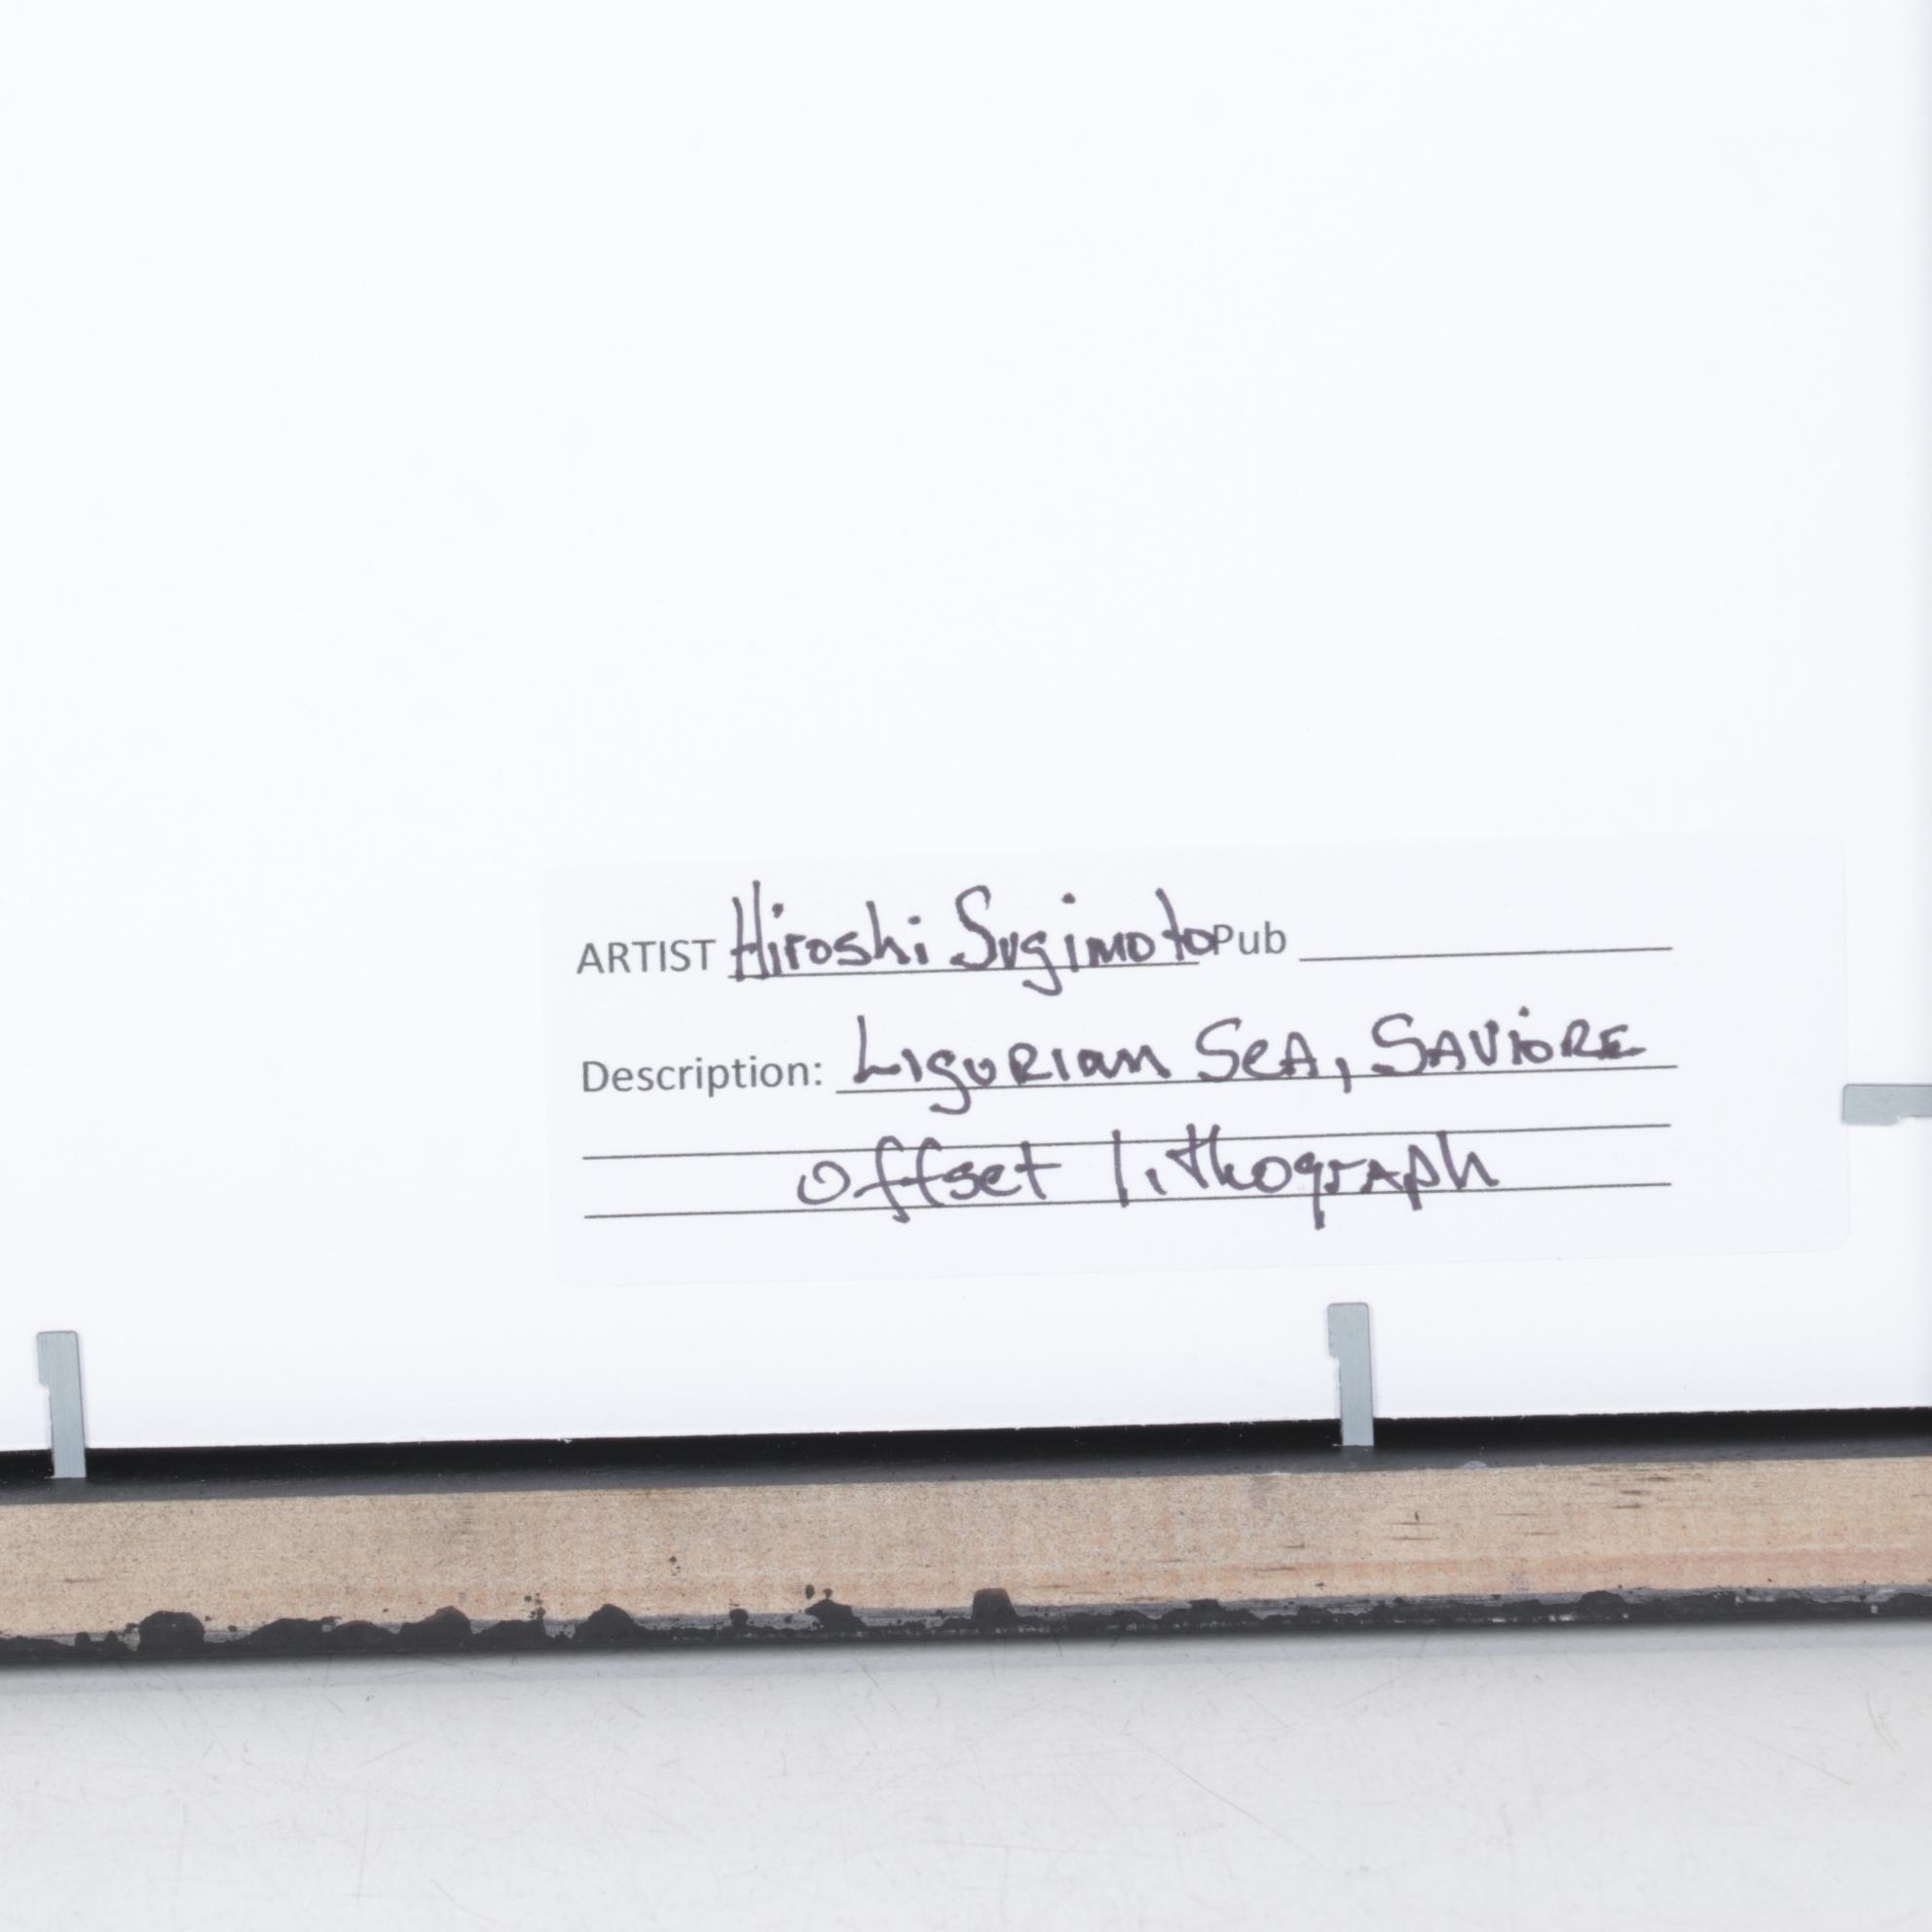 ARTIST Hiroshi Sugimoto Pub
Description: Ligurian Sea, Saviore
offset lithograph